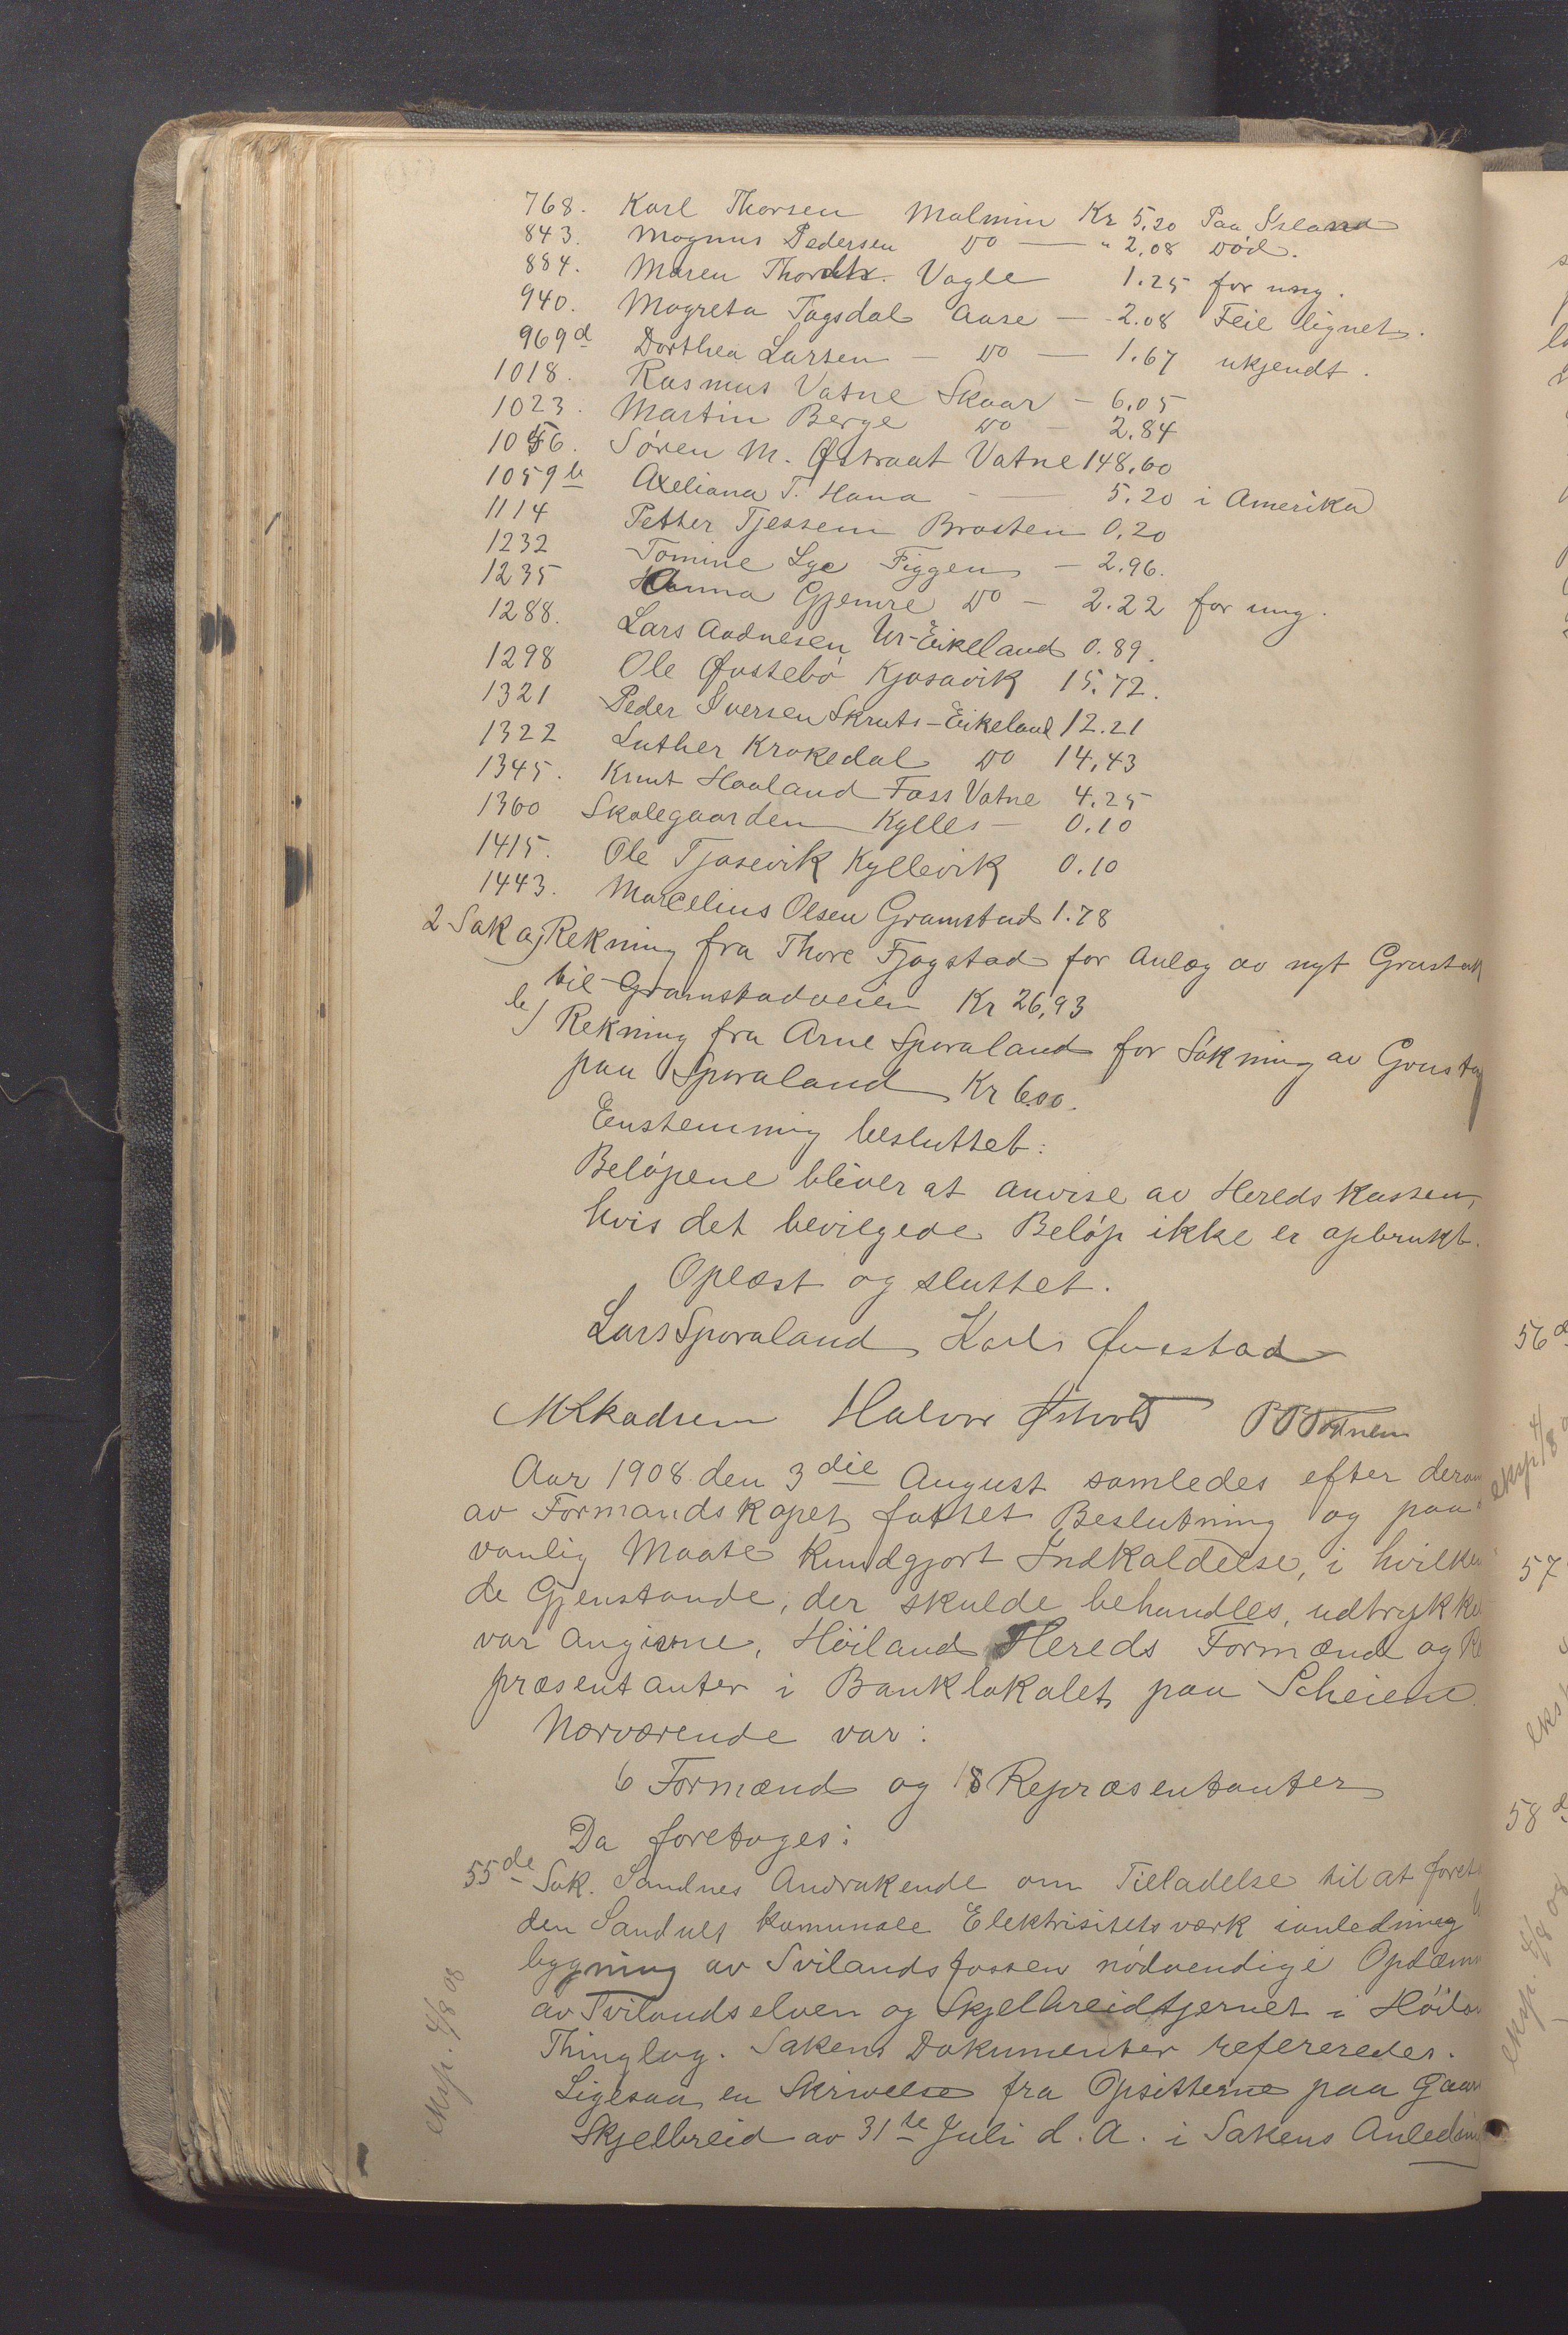 768. Karl Thorsen Malmin Kr 5,20 Paa Island
843. Magnus Pedersen Do — " 2,08 Død.
884. Maren Thordtr. Vagle 1.25 for ung.
940. Magreta Tagsdal Aase — 2.08 Feil lignet.
969d Dorthea Larsen — Do — 1.67 ukjendt.
1018. Rasmus Vatne Skaar — 6,05
1023. Martin Berge Do — 2,84
1056. Søren M. Østraat Vatne 148,60
1059b Axeliana T. Hana — 5,20 i Amerika
1114 Petter Tjessem Brasten 0,20
1232 Tomine Lye Figgen — 2,96.
1235 Hanna Gjemre Do — 2.22 for ung.
1288. Lars Aadnesen Ur-Eikeland 0.89.
1298 Ole Øvstebø Kjosavik 15,72.
1321 Peder Iversen Skruts-Eikeland 12.21
1322 Luther Krokedal Do 14,43
1345. Knut Haaland Foss Vatne 4.25
1360 Skolegaarden Kylles — 0.10
1415. Ole Tjosevik Kyllevik 0.10
1443. Marcelius Olsen Gramstad 1.78
2 Sak a) Rekning fra Thore Fjogstad for Anlæg av nyt Grustak
til Gramstadveien Kr 26,93
b) Rekning fra Arne Sporaland for Søkning av Grustag
paa Sporaland Kr 6.00.
Eenstemmig besluttet:
Beløpene bliver at anvise av Heredskassen,
hvis det bevilgede Beløp ikke er opbrukt.
Oplæst og sluttet.
Lars Sporaland Karl Øvestad
M Skadsem Halvor Østvold
Aar 1908 den 3die August samledes efter derom
av Formandskapet fattet Beslutning og paa
vanlig Maate kundgjort Indkaldelse, i hvilken
de Gjenstande, der skulde behandles, udtrykke
var angivne, Høiland Hereds Formænd og Re
præsentanter i Banklokalet paa Scheiene.
Nærværende var:
6 Formænd og 18 Repræsentanter
Da foretoges:
55de Sak. Sandnes Andrakende om Tilladelse til at foret
den Sandnes kommunale Elektrisitetsværk ianledning
bygning av Svilandsfossen nødvendige Opdæm
av Svilandselven og Skjelbreidtjernet i Høilan
Thinglag. Sakens Dokumenter refereredes.
Ligesaa en Skrivelse fra Opsitterne paa Gaar
Skjelbreid av 31te Juli d. A. i Sakens Anledning
eksp. 4/8 08
56de
eksp 4/8 0
57
58de
eksp. 4/8 08